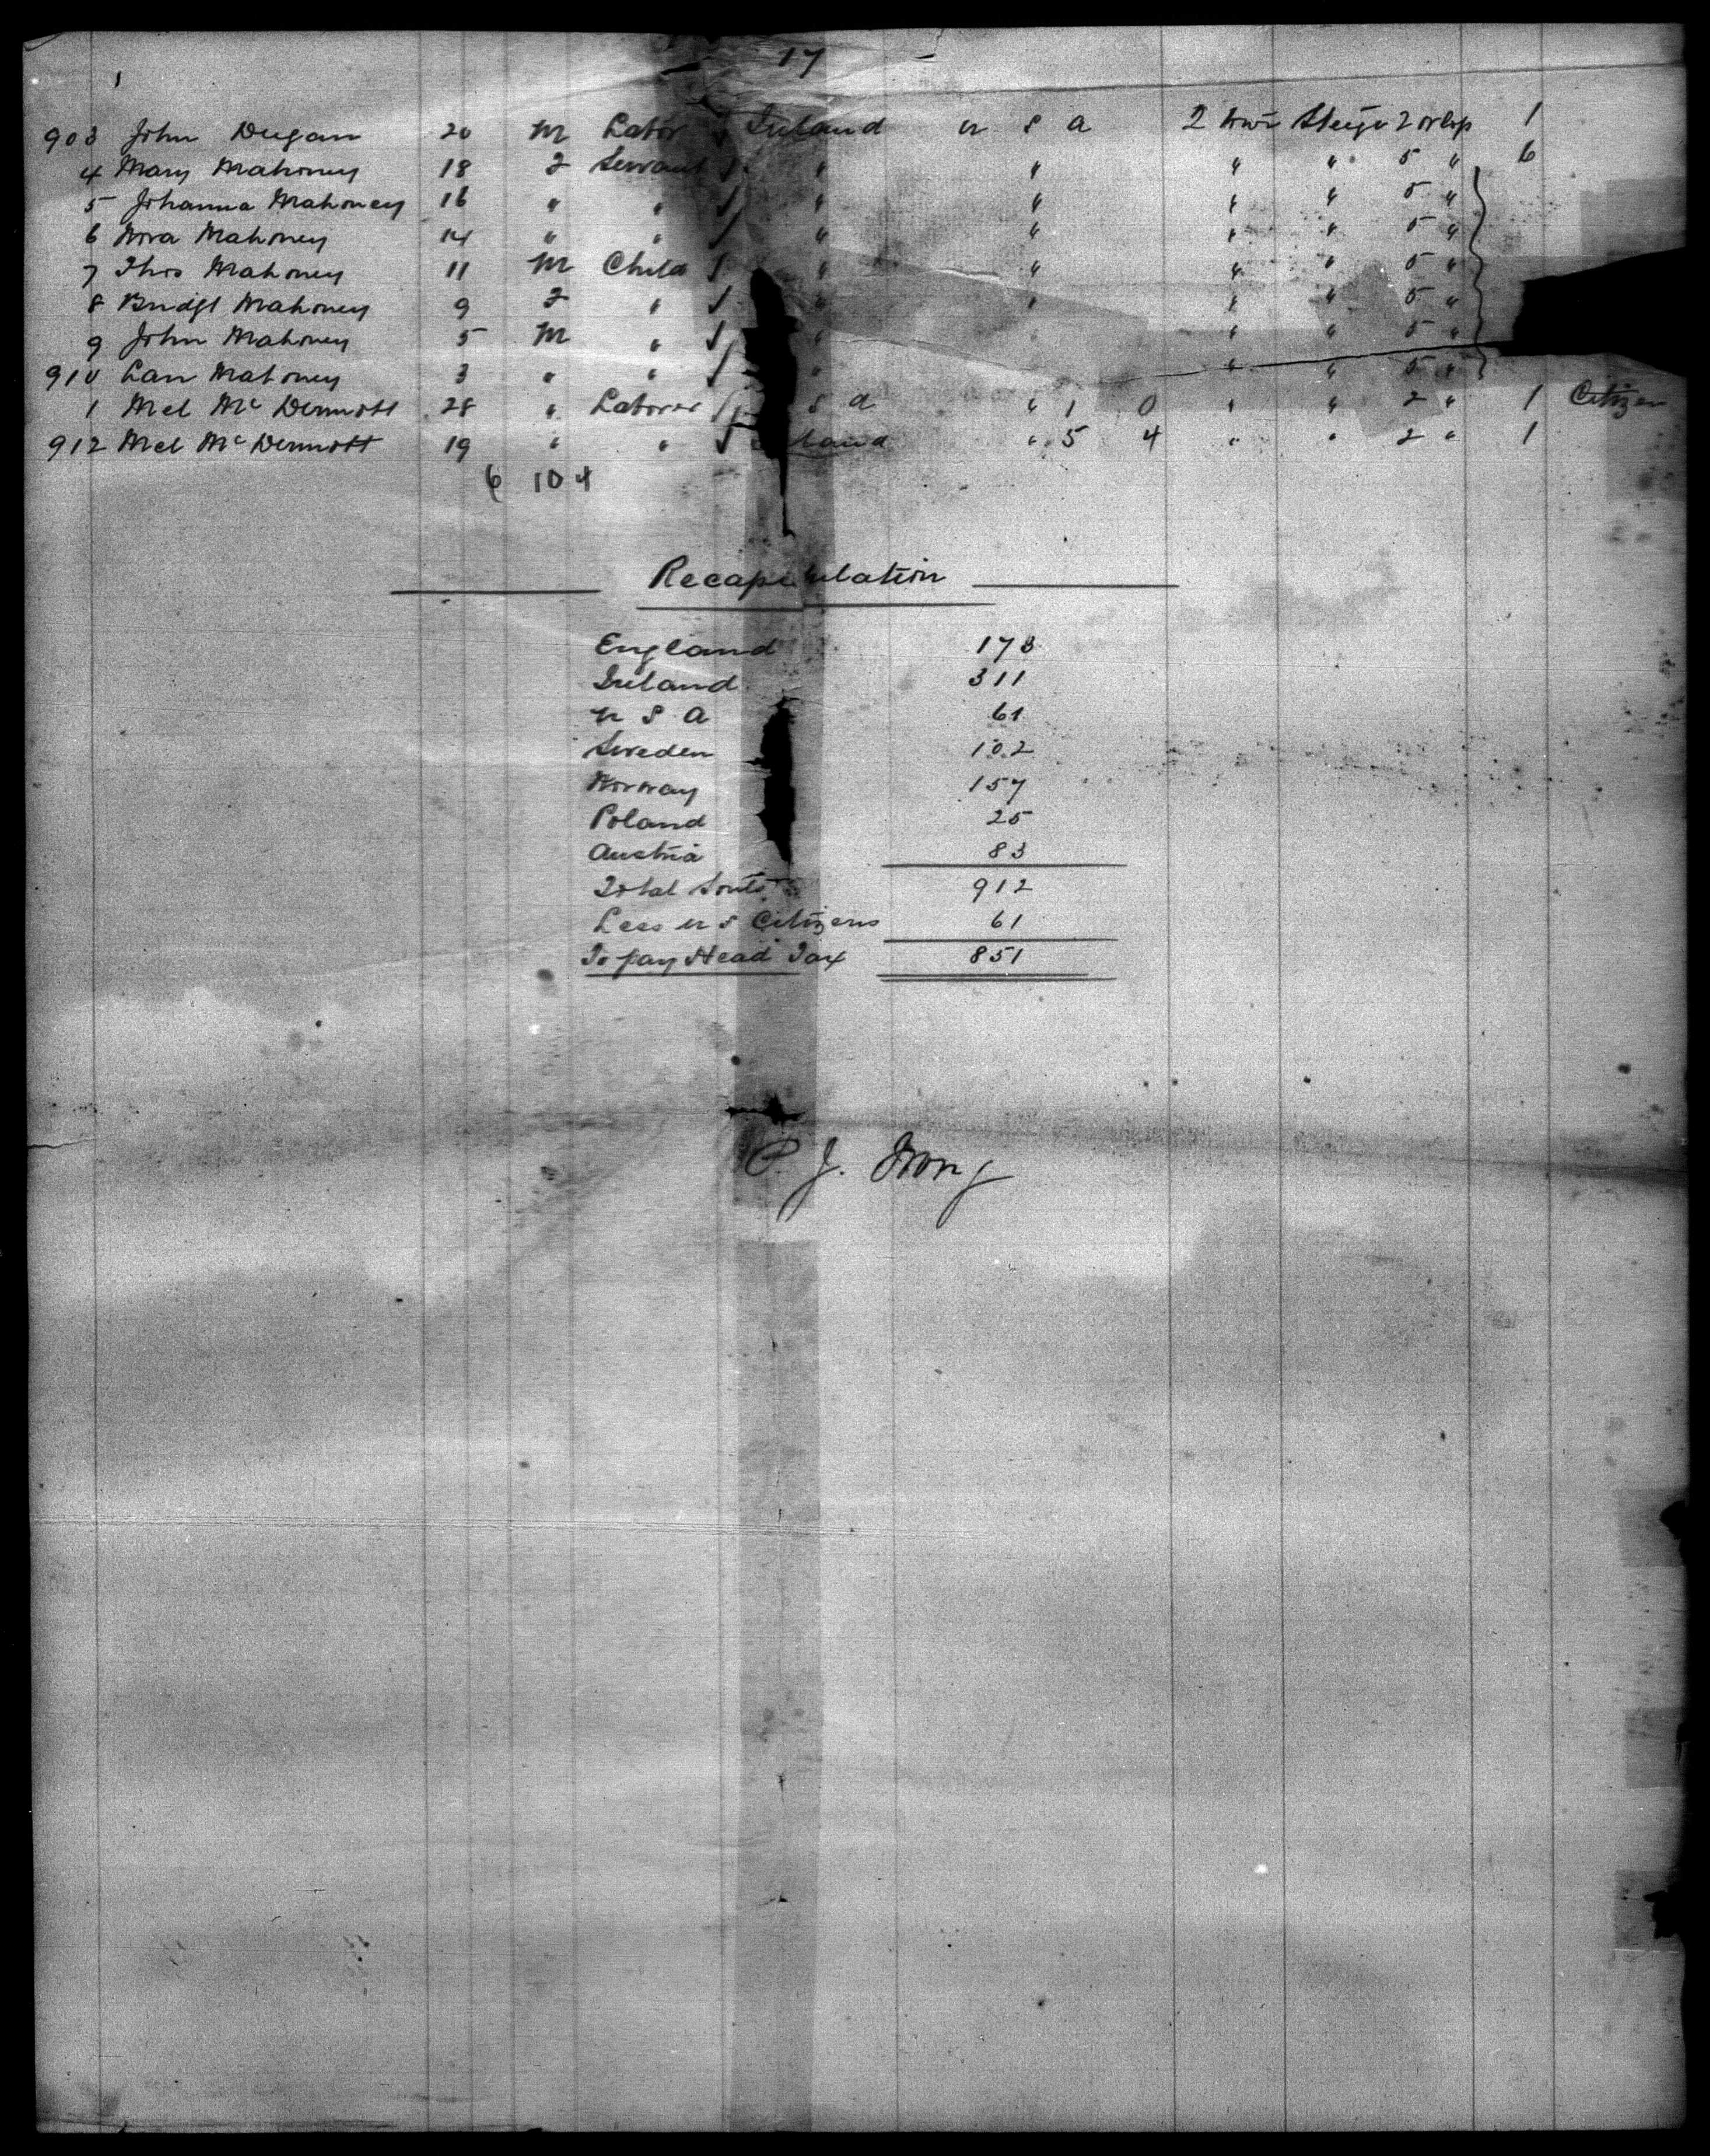 17
903 John Dugan 20 M Labor Ireland U S A 2 Steige 2 orlop 1
4 Mary Mahoney 18 F Servant " " " " 5 " 6
5 Johanna Mahoney 16 " " " " " " 5 "
6 Nora Mahoney 14 " " " " " " 5 "
7 Thos Mahoney 11 M Child " " " " 5 "
8 Bridgt Mahoney 9 F " " " " " 5 "
9 John Mahoney 5 M " " " " 5 "
910 Lan Mahoney 3 " " " " " 5 "
1 Mcl McDermott 28 " Laborer S A " 1 0 " " 2 " 1 Citizen
912 Mcl McDermott 19 " " land " 5 4 " " 2 " 1
6 10 4
Recapitulation
England 173
Ireland 311
U S A 61
Sweden 102
Norway 157
Poland 25
Austria 83
Total Souls 912
Less U S Citizens 61
To pay Head Tax 851
P. J. Irving